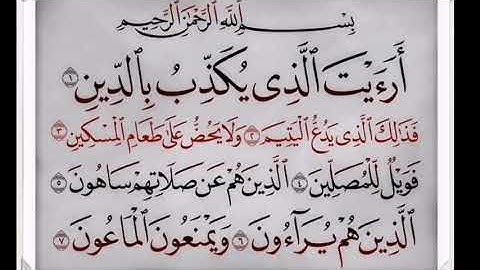 بِسْمِ اللَّهِ الرَّحْمَٰنِ الرَّحِيمِ
أَرَءَيْتَ الَّذِي يُكَذِّبُ بِالدِّينِ ١
فَذَٰلِكَ الَّذِي يَدُعُّ الْيَتِيمَ ٢ وَلَا يَحُضُّ عَلَىٰ طَعَامِ الْمِسْكِينِ ٣
فَوَيْلٌ لِّلْمُصَلِّينَ ٤ الَّذِينَ هُمْ عَن صَلَاتِهِمْ سَاهُونَ ٥
الَّذِينَ هُمْ يُرَآءُونَ ٦ وَيَمْنَعُونَ الْمَاعُونَ ٧